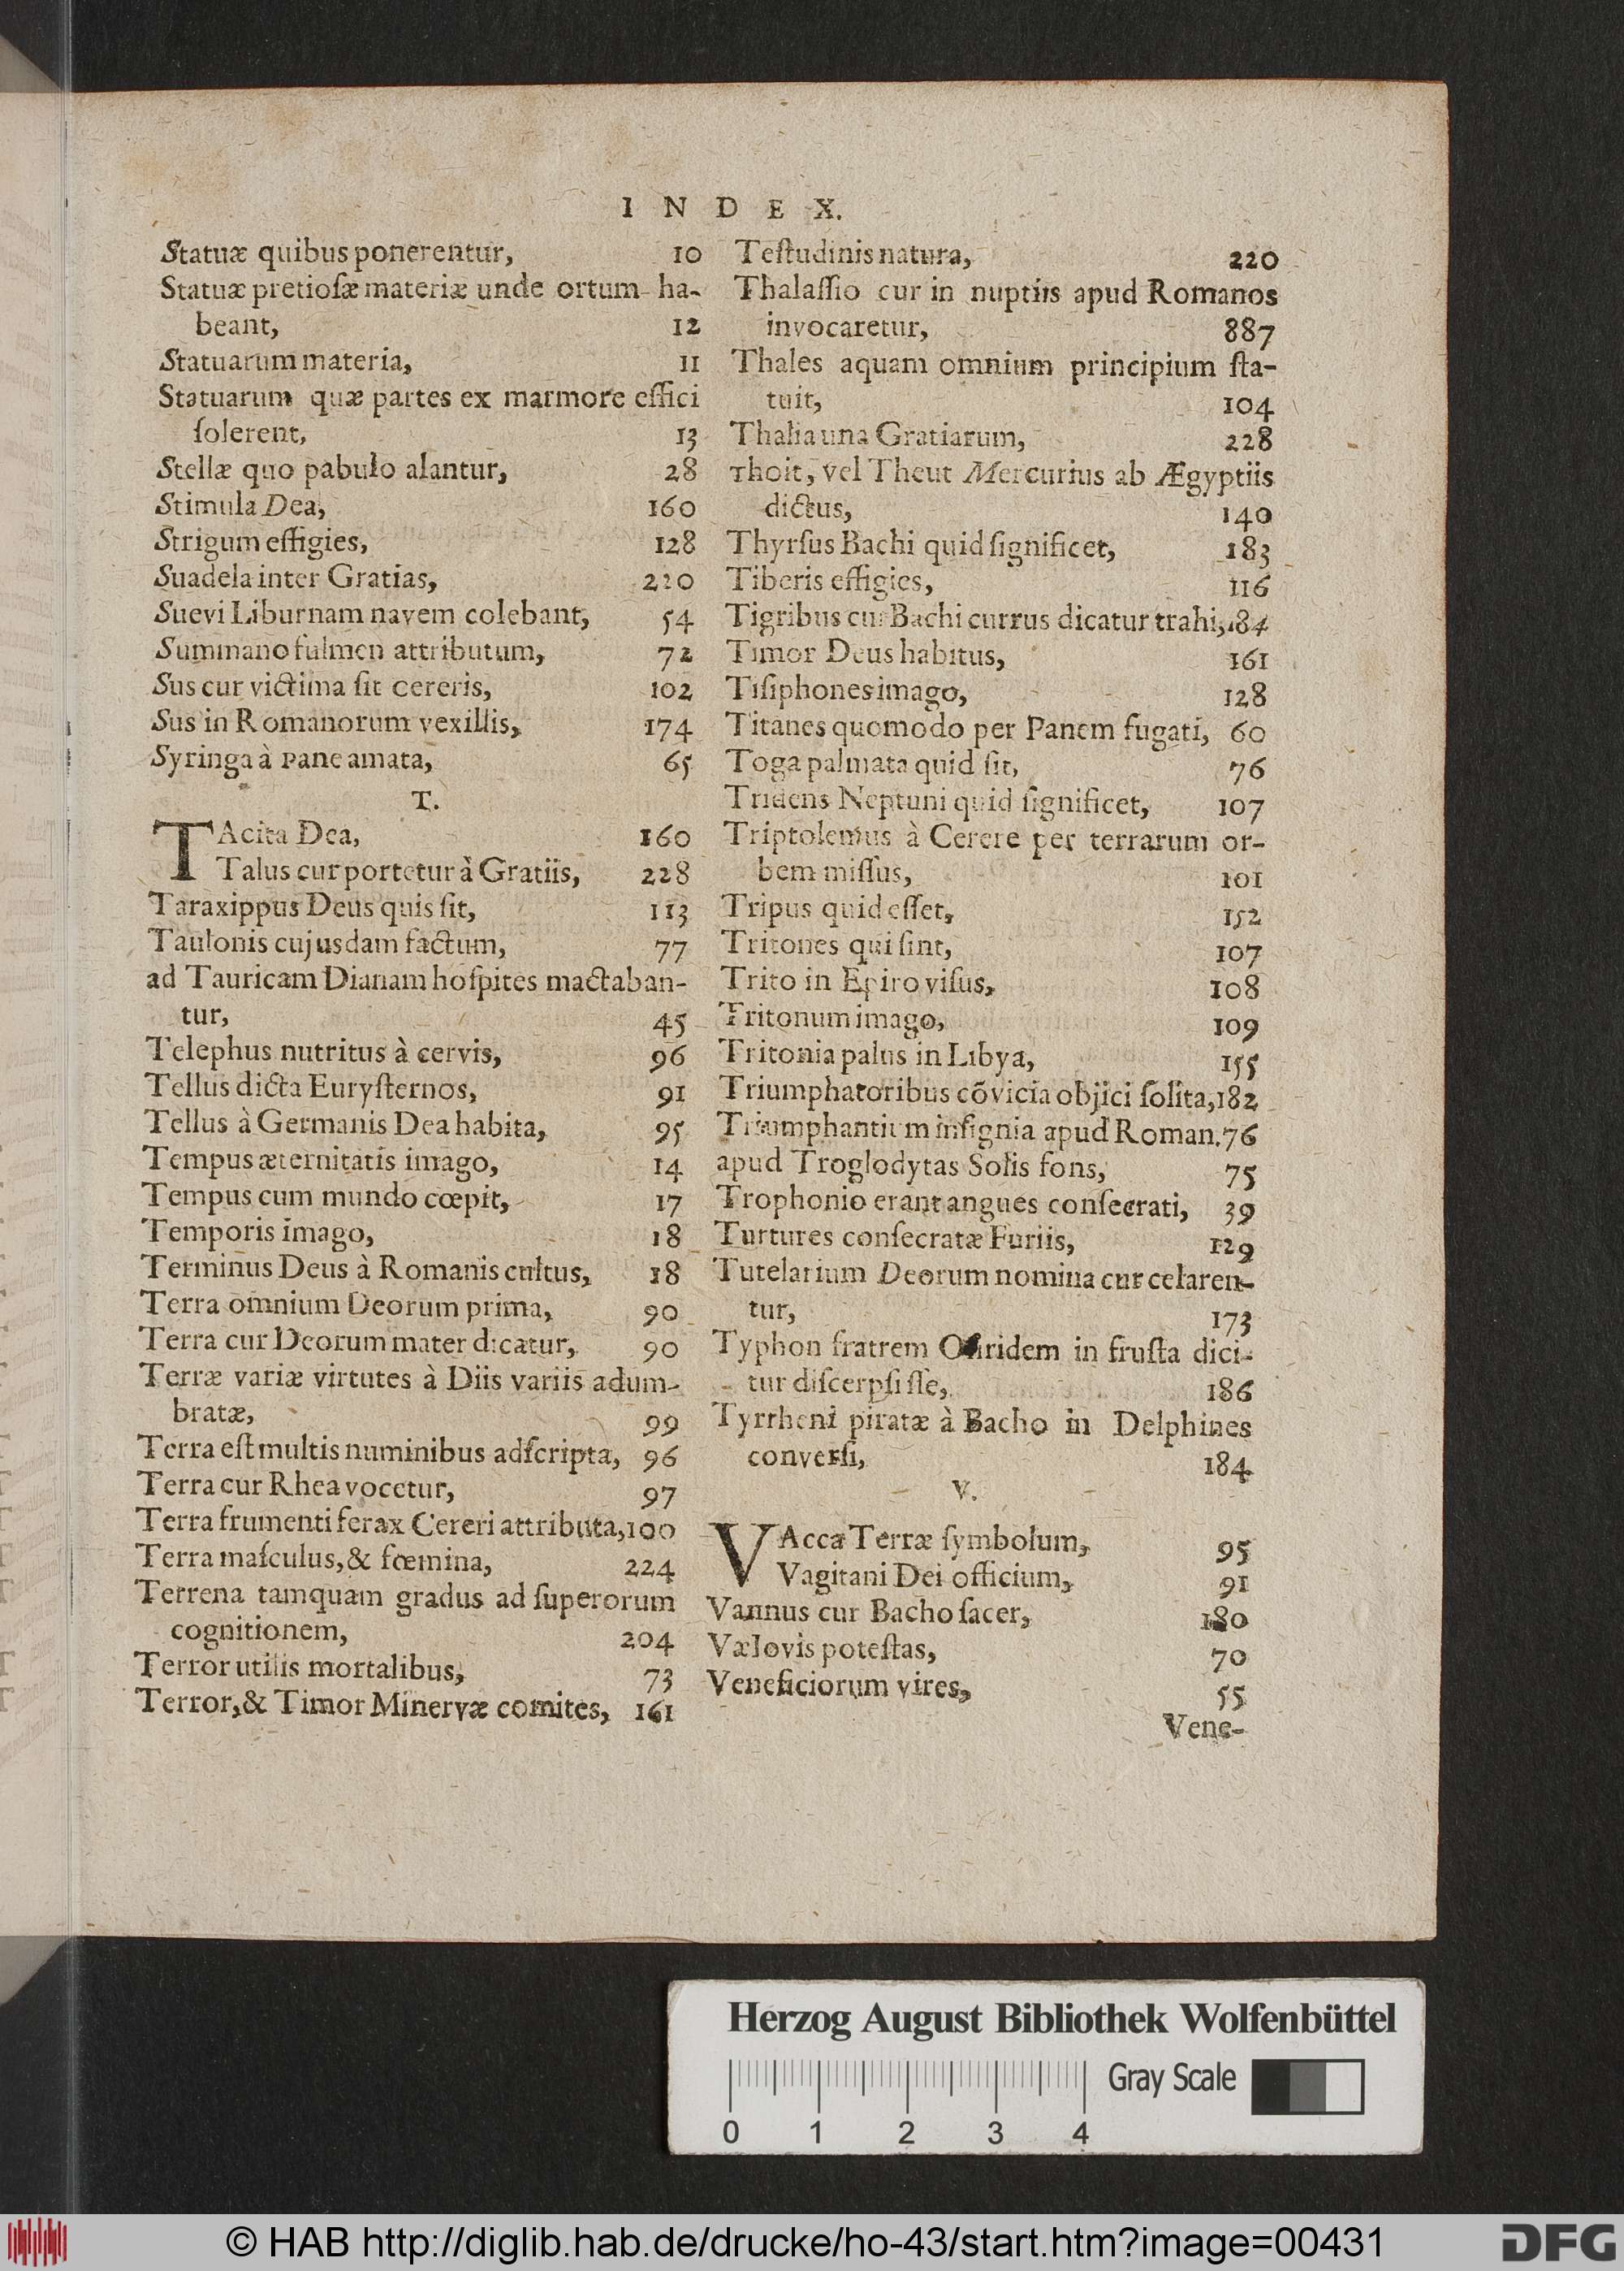 INDEX.
Statuæ quibus ponerentur, 10
Statuæ pretioſæ materiæ unde ortum ha-
beant, 12
Statuarum materia, 11
Statuarum quæ partes ex marmore effici
ſolerent, 13
Stellæ quo pabulo alantur, 28
Stimula Dea, 160
Strigum effigies, 128
Suadela inter Gratias, 220
Suevi Liburnam navem colebant, 54
Summano fulmen attributum, 72
Sus cur victima ſit cereris, 102
Sus in Romanorum vexillis, 174
Syringa à Pane amata, 65
T.
TAcita Dea, 160
Talus cur portetur à Gratiis, 228
Taraxippus Deus quis ſit, 113
Taulonis cujusdam factum, 77
ad Tauricam Dianam hoſpites mactaban-
tur, 45
Telephus nutritus à cervis, 96
Tellus dicta Euryſternos, 91
Tellus à Germanis Dea habita, 95
Tempus æternitatis imago, 14
Tempus cum mundo cœpit, 17
Temporis imago, 18
Terminus Deus à Romanis cultus, 18
Terra omnium Deorum prima, 90
Terra cur Deorum mater dicatur, 90
Terræ variæ virtutes à Diis variis adum-
bratæ, 99
Terra eſt multis numinibus adſcripta, 96
Terra cur Rhea vocetur, 97
Terra frumenti ferax Cereri attributa, 100
Terra maſculus, & fœmina, 224
Terrena tamquam gradus ad ſuperorum
cognitionem, 204
Terror utilis mortalibus, 73
Terror, & Timor Minervæ comites, 161
Teſtudinis natura, 220
Thalaſſio cur in nuptiis apud Romanos
invocaretur, 887
Thales aquam omnium principium ſta-
tuit, 104
Thalia una Gratiarum, 228
Thoit, vel Theut Mercurius ab Ægyptiis
dictus, 140
Thyrſus Bachi quid ſignificet, 183
Tiberis effigies, 116
Tigribus cur Bachi currus dicatur trahi, 184
Timor Deus habitus, 161
Tiſiphones imago, 128
Titanes quomodo per Panem fugati, 60
Toga palmata quid ſit, 76
Tridens Neptuni quid ſignificet, 107
Triptolemus à Cerere per terrarum or-
bem miſſus, 101
Tripus quid eſſet, 152
Tritones qui ſint, 107
Trito in Epiro viſus, 108
Tritonum imago, 109
Tritonia palus in Libya, 155
Triumphatoribus cõvicia objici ſolita, 182
Triumphantium inſignia apud Roman. 76
apud Troglodytas Solis fons, 75
Trophonio erant angues conſecrati, 39
Turtures conſecratæ Furiis, 129
Tutelarium Deorum nomina cur celaren-
tur, 173
Typhon fratrem Oſiridem in fruſta dici-
tur diſcerpſiſſe, 186
Tyrrheni piratæ à Bacho in Delphines
converſi, 184
V.
VAcca Terræ ſymbolum, 95
Vagitani Dei officium, 91
Vannus cur Bacho ſacer, 180
Vælovis poteſtas, 70
Veneficiorum vires, 55
Vene-
Herzog August Bibliothek Wolfenbüttel
Gray Scale
0 1 2 3 4
© HAB http://diglib.hab.de/drucke/ho-43/start.htm?image=00431
DFG